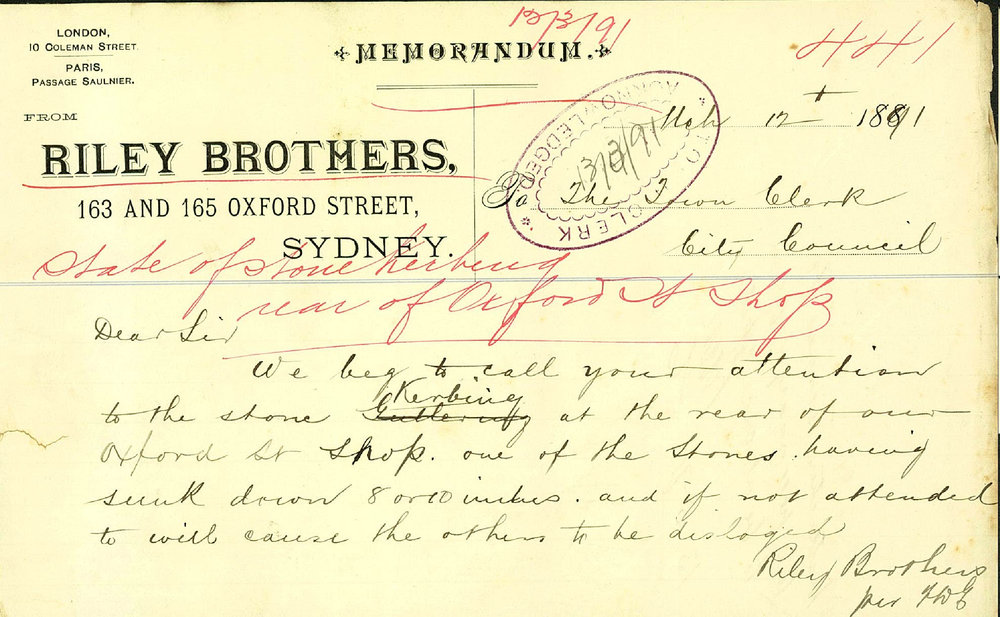 LONDON,
10 COLEMAN STREET.
PARIS,
PASSAGE SAULNIER.
13/3/91
MEMORANDUM.
441
FROM
RILEY BROTHERS,
163 AND 165 OXFORD STREET,
SYDNEY.
Mch 12t 1891
TOWN CLERK
ACKNOWLEDGED
13/3/91
To The Town Clerk
City Council
State of stone kerbing
rear of Oxford St Shop
Dear Sir
We beg to call your attention
to the stone Guttering Kerbing at the rear of our
Oxford St Shop. one of the Stones. having
sunk down 8 or 10 inches. and if not attended
to will cause the others to be disloged
Riley Brothers
per